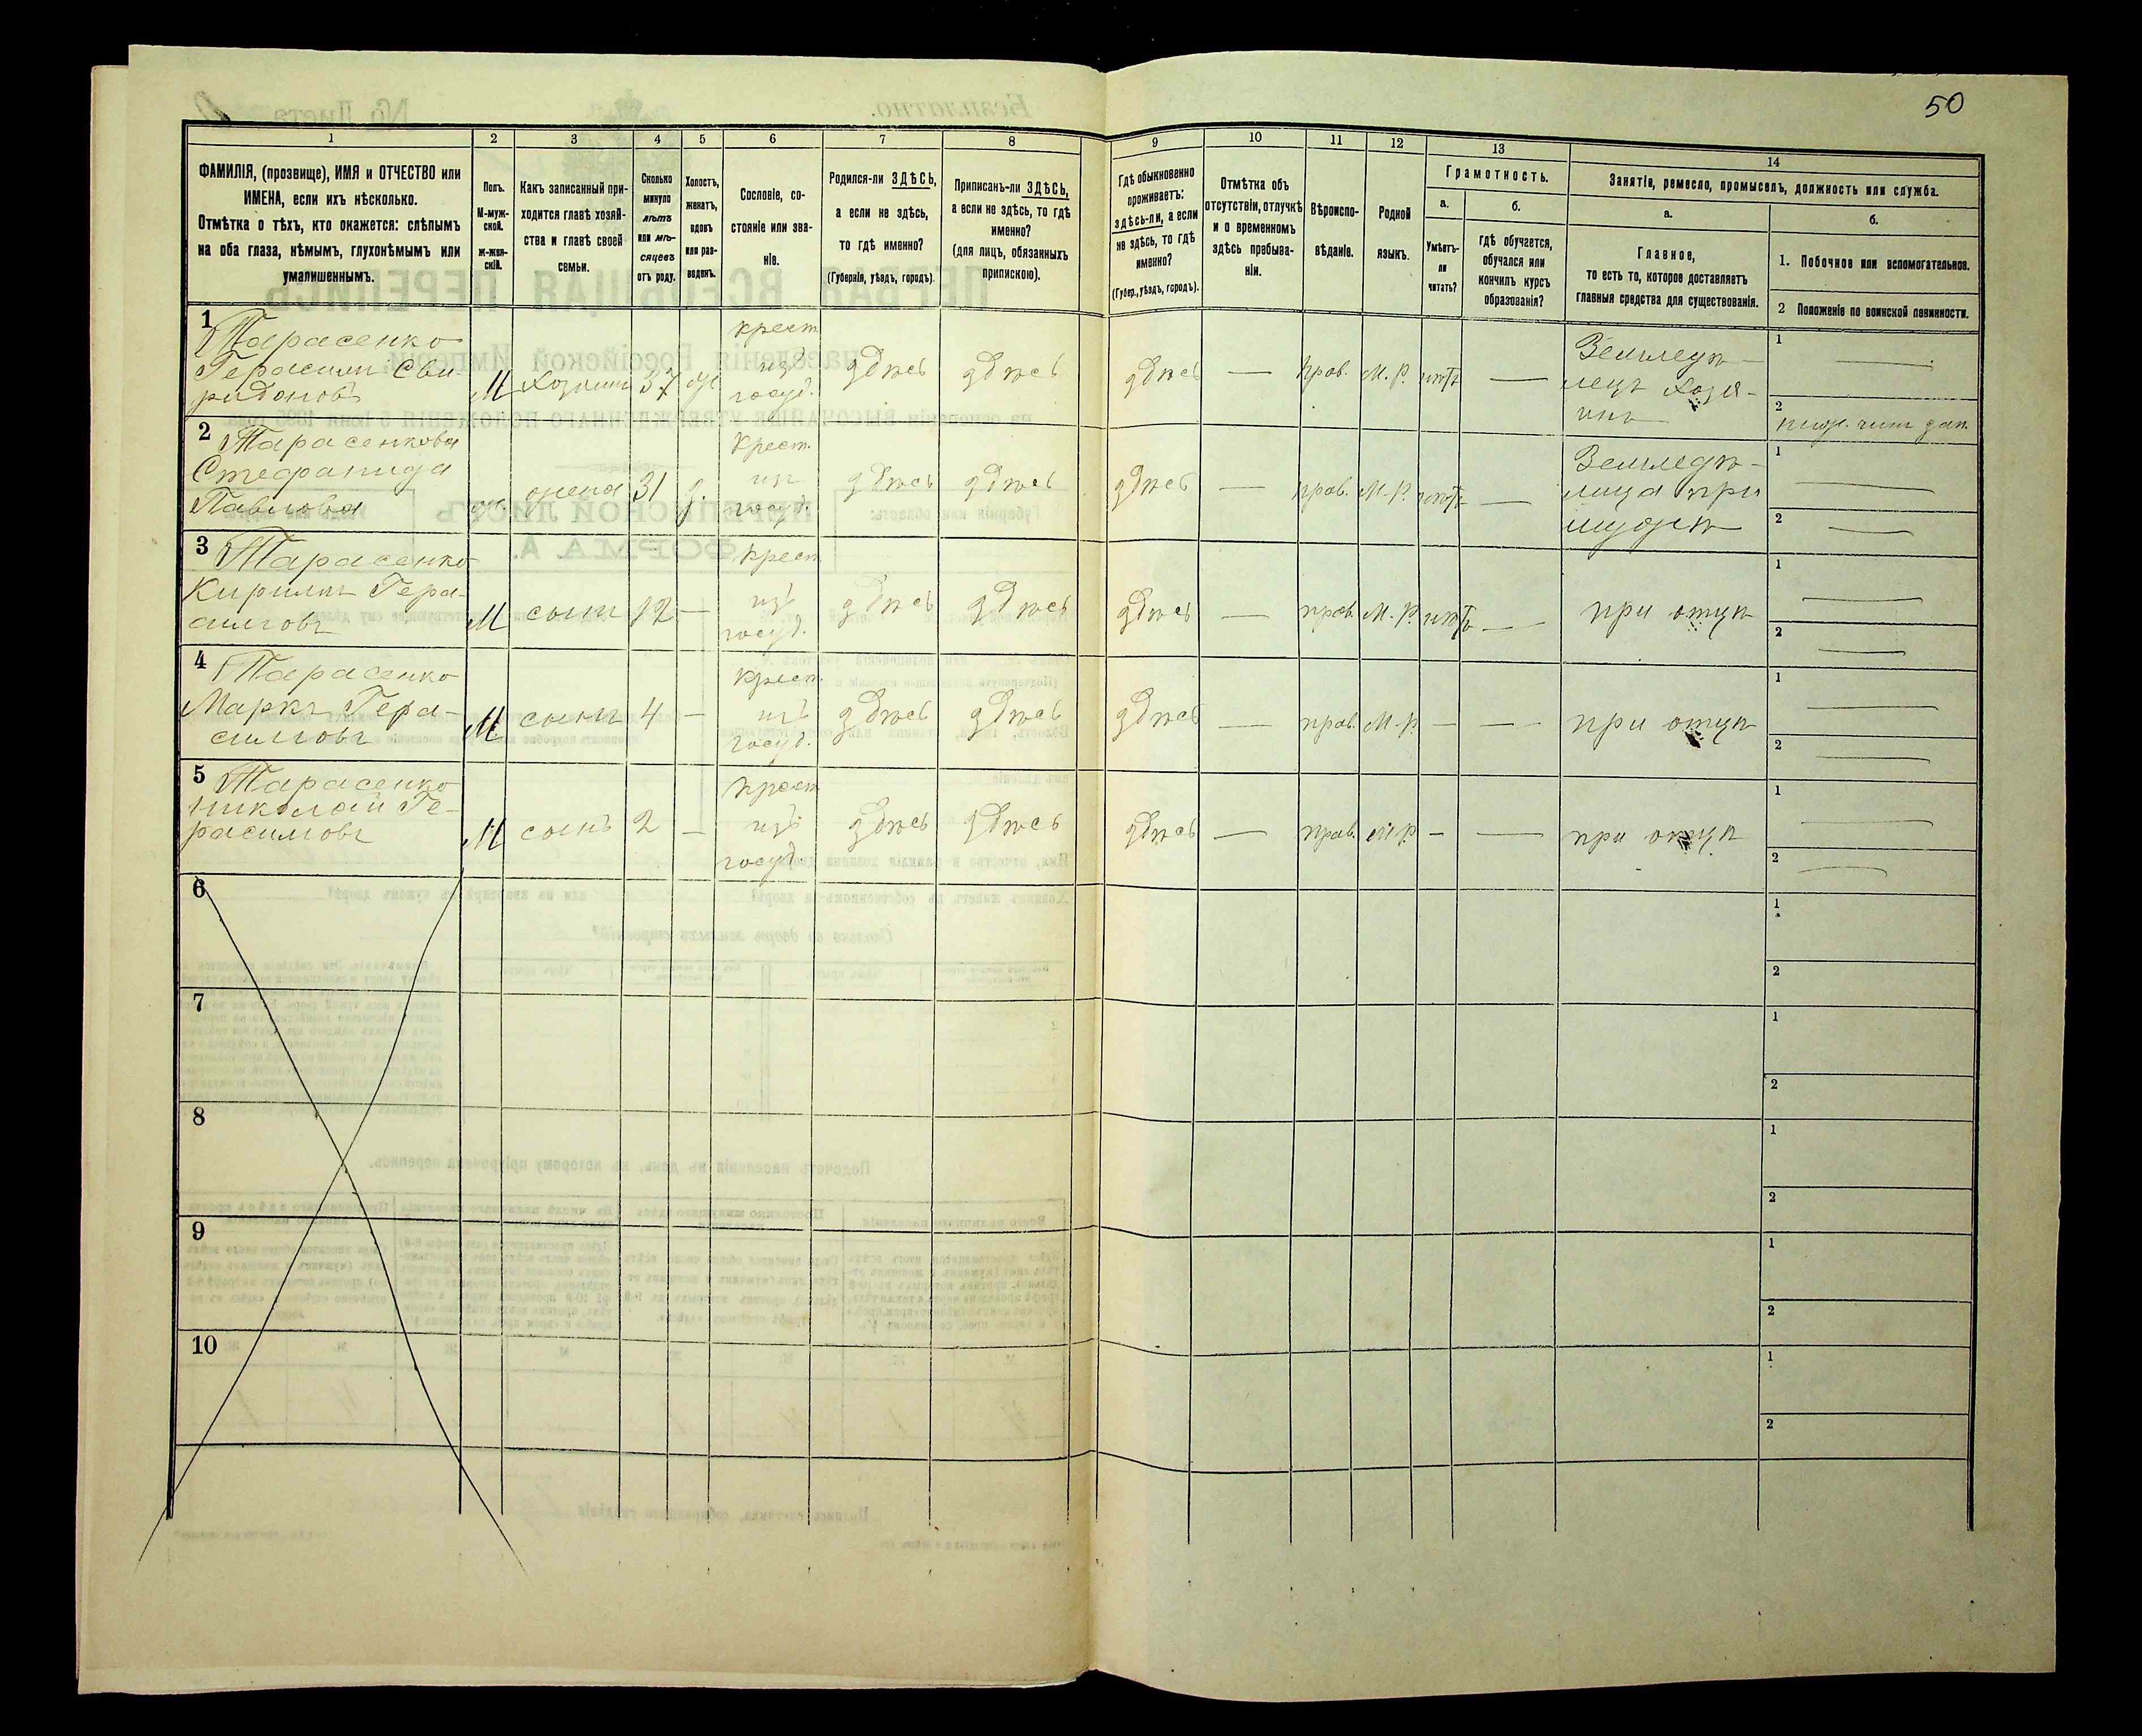 50
1
2
3
4
5
6
7
8
9
10
11
12
13
14
ФАМИЛІЯ, (прозвище), ИМЯ и ОТЧЕСТВО или
ИМЕНА, если ихъ нѣсколько.
Отмѣтка о тѣхъ, кто окажется: слѣпымъ
на оба глаза, нѣмымъ, глухонѣмымъ или
умалишеннымъ.
Полъ.
М-муж-
ской.
ж-жен-
скій.
Какъ записанный при-
ходится главѣ хозяй-
ства и главѣ своей
семьи.
Сколько
минуло
лѣтъ
или мѣ-
сяцевъ
отъ роду.
Холостъ,
женатъ,
вдовъ
или раз-
веденъ.
Сословіе, со-
стояніе или зва-
ніе.
Родился-ли ЗДѢСЬ,
а если не здѣсь,
то гдѣ именно?
(Губернія, уѣздъ, городъ).
Приписанъ-ли ЗДѢСЬ,
а если не здѣсь, то гдѣ
именно?
(для лицъ, обязанныхъ
припискою).
Гдѣ обыкновенно
проживаетъ:
здѣсь-ли, а если
не здѣсь, то гдѣ
именно?
(Губер., уѣздъ, городъ).
Отмѣтка объ
отсутствіи, отлучкѣ
и о временномъ
здѣсь пребыва-
ніи.
Вѣроиспо-
вѣданіе.
Родной
языкъ.
Грамотность.
а.
Умѣетъ-
ли
читать?
б.
гдѣ обучается,
обучался или
кончилъ курсъ
образованія?
Занятіе, ремесло, промыселъ, должность или служба.
а.
Главное,
то есть то, которое доставляетъ
главныя средства для существованія.
б.
1. Побочное или вспомогательное.
2 Положеніе по воинской повинности.
1
Тарасенко
Герасимъ Сви
ридоновъ
М
Хозяинъ
37
ж.
крест
изъ
госуд.
здѣсь
здѣсь
здѣсь
—
прав.
М. Р.
нѣтъ
—
Земледѣ-
лецъ хозя-
инъ
1 —
2
2
Тарасенкова
Стефанида
Павлова
ж.
жена
31
з.
Крест.
изъ
госуд.
здѣсь
здѣсь
здѣсь
—
прав.
М. Р.
нѣтъ
—
Земледѣ-
лица при
мужѣ
1 —
2 —
3
Тарасенко
Кирилъ Гера-
симовъ
М
сынъ
12
—
крест
изъ
госуд.
здѣсь
здѣсь
здѣсь
—
прав.
М. Р.
нѣтъ
—
при отцѣ
1 —
2 —
4
Тарасенко
Маркъ Гера-
симовъ
М
сынъ
4
—
крест.
изъ
госуд.
здѣсь
здѣсь
здѣсь
—
прав.
М. Р.
—
—
при отцѣ
1 —
2 —
5
Тарасенко
Николай Ге-
расимовъ
М
сынъ
2
—
крест
изъ
госуд.
здѣсь
здѣсь
здѣсь
—
прав.
М. Р.
—
—
при отцѣ
1 —
2 —
6
1
2
7
1
2
8
1
2
9
1
2
10
1
2